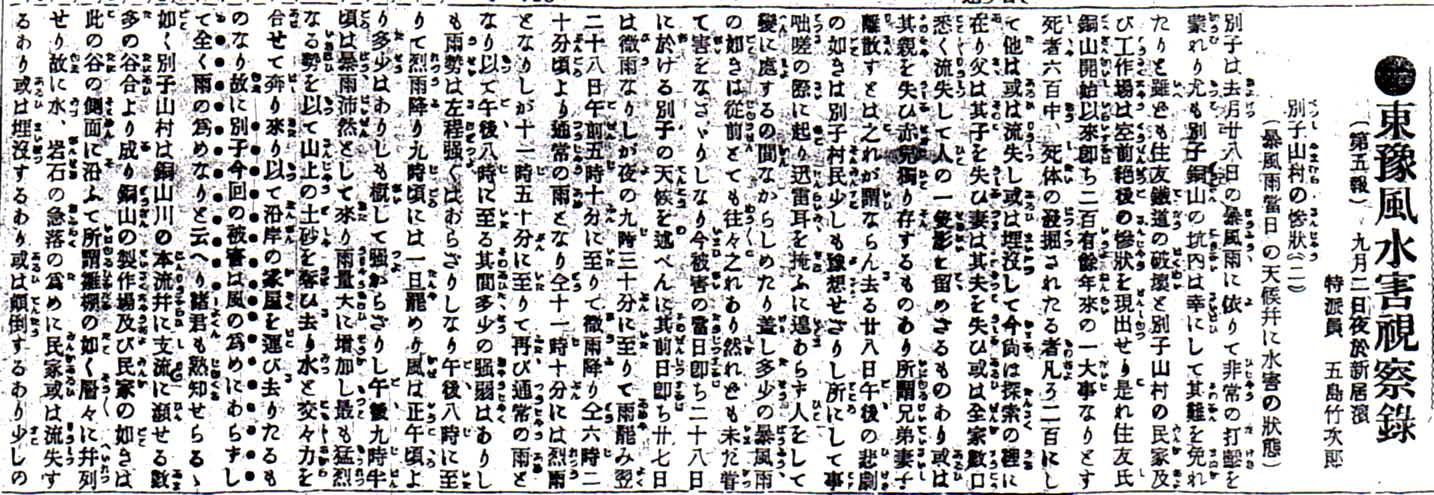 ●東豫風水害視察錄
(第五報) 九月二日夜於新居濱
特派員 五島竹次郎
別子山村の慘狀(二)
(暴風雨當日の天候幷に水害の狀態)
別子は去月廿八日の暴風雨に依りて非常の打擊を
蒙れり尤も別子銅山の坑內は幸にして其難を免れ
たりと雖とも住友鐵道の破壞と別子山村の民家及
び工作場は空前絕後の慘狀を現出せり是れ住友氏
銅山開始以來卽ち二百有餘年來の一大事なりとす
死者六百中、死体の發掘されたる者凡ろ二百にし
て他は或は流失し或は埋沒して今尙ほ探索の裡に
在り父は其子を失ひ妻は其夫を失ひ或は全家數口
悉く流失して人の一隻影を留めさるものあり或は
其親を失ひ赤兒獨り存するものあり所謂兄弟妻子
離散すとは之れが謂ならん去る廿八日午後の悲劇
の如きは別子村民少しも豫想せざりし所にして事
咄嗟の際に起り迅雷耳を掩ふに遑あらす人をして
變に處するの間なからしめたり蓋し多少の暴風雨
の如きは從前とても往々之れあり然れとも未だ甞
て害をなさゞりしなり今被害の當日卽ち二十八日
に於ける別子の天候を述べんに其前日卽ち廿七日
は微雨なりしが夜の九時三十分に至りて雨罷み翌
二十八日午前五時十分に至りて微雨降り仝六時二
十分頃より通常の雨となり仝十一時十分には烈雨
となりしが十一時五十分に至りて再び通常の雨と
なり以て午後八時に至る其間多少の强弱はありし
も雨勢は左程强くはおらざりしなり午後八時に至
りて烈雨降り九時頃には一旦罷めり風は正午頃よ
り多少はありしも槪して强からざりし午後九時半
頃は暴雨沛然として來り雨量大に增加し最も猛烈
なる勢を以て山上の土砂を奪ひ去り水と交々力を
合せて奔り來り以て沿岸の家屋を運び去りたるも
のなり故に別子今回の被害は風の爲めにあらずし
て全く雨の爲めなりと云へり諸君も熟知せらるゝ
如く別子山村は銅山川の本流幷に支流に瀕せる數
多の谷合より成り銅山の製作場及び民家の如きは
此の谷の側面に沿ふて所謂雛棚の如く層々に幷列
せり故に水、岩石の急落の爲めに民家或は流失す
るあり或は埋沒するあり或は顚倒するあり少しの